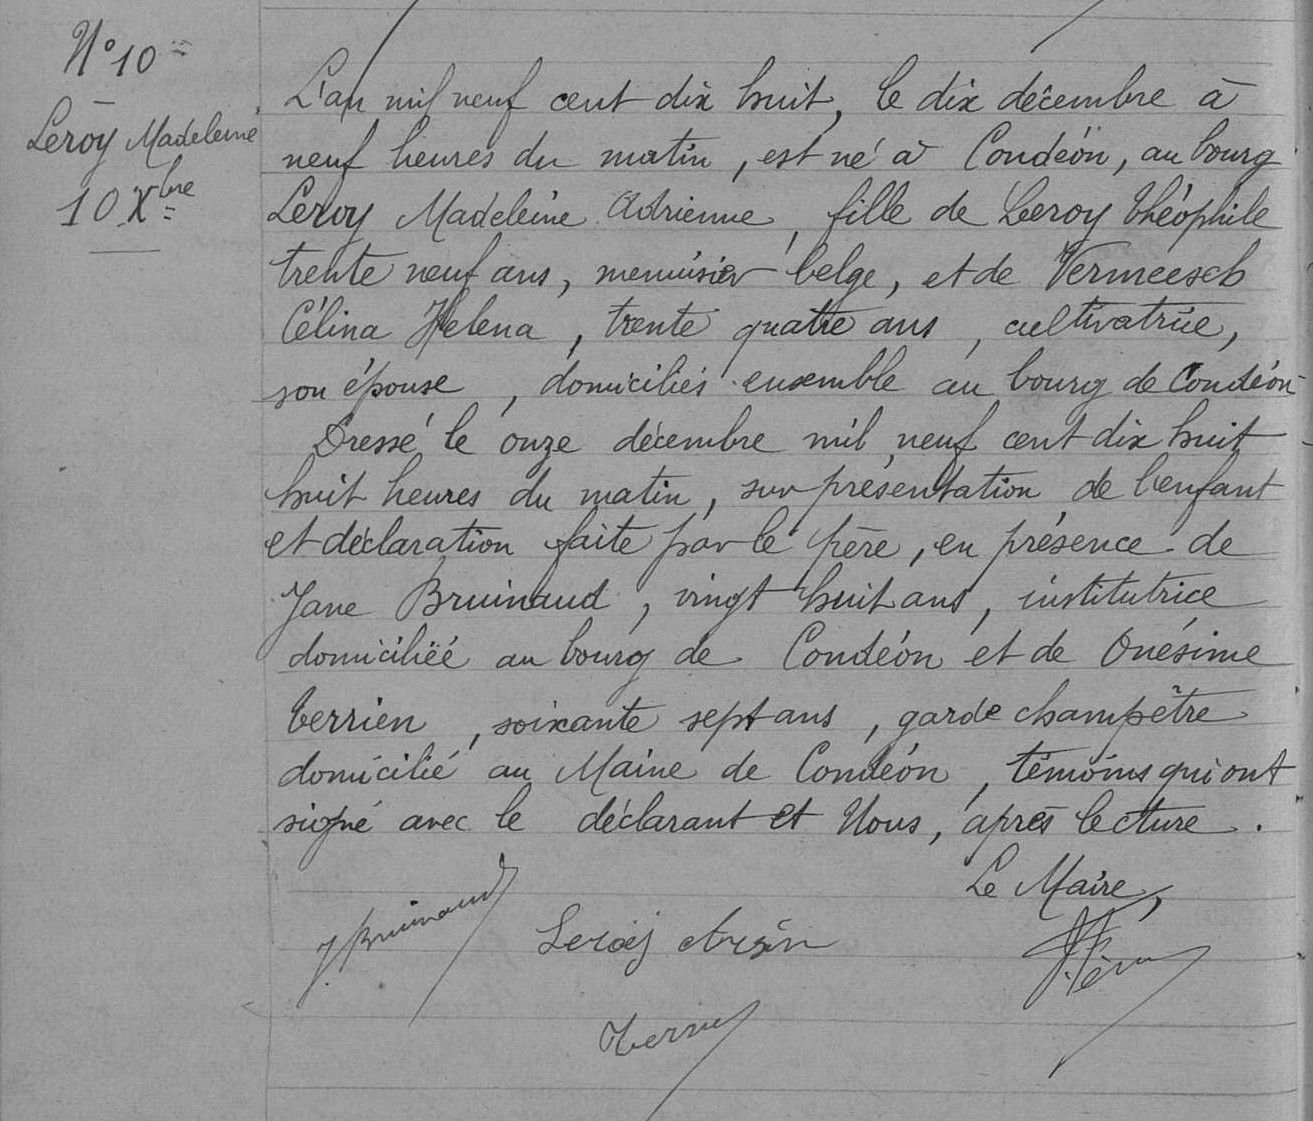 N° 10
Leroy Madeleine
10 Xbre
L'an mil neuf cent dix huit, le dix décembre à
neuf heures du matin, est né à Condéon, au bourg
Leroy Madeleine Adrienne, fille de Leroy Théophile
trente neuf ans, menuisier belge, et de Vermeesch
Célina Helena, trente quatre ans, cultivatrice,
son épouse, domiciliés ensemble au bourg de Condéon
Dressé le onze décembre mil neuf cent dix huit
huit heures du matin, sur présentation de l'enfant
et déclaration faite par le père, en présence de
Jane Bruinaud, vingt huit ans, institutrice
domiciliée au bourg de Condéon et de Onésime
Terrien, soixante sept ans, garde champêtre
domicilié au Maine de Condéon, témoins qui ont
signé avec le déclarant et Nous, après lecture.
Le Maire,
J. Bruinaud
Leroij